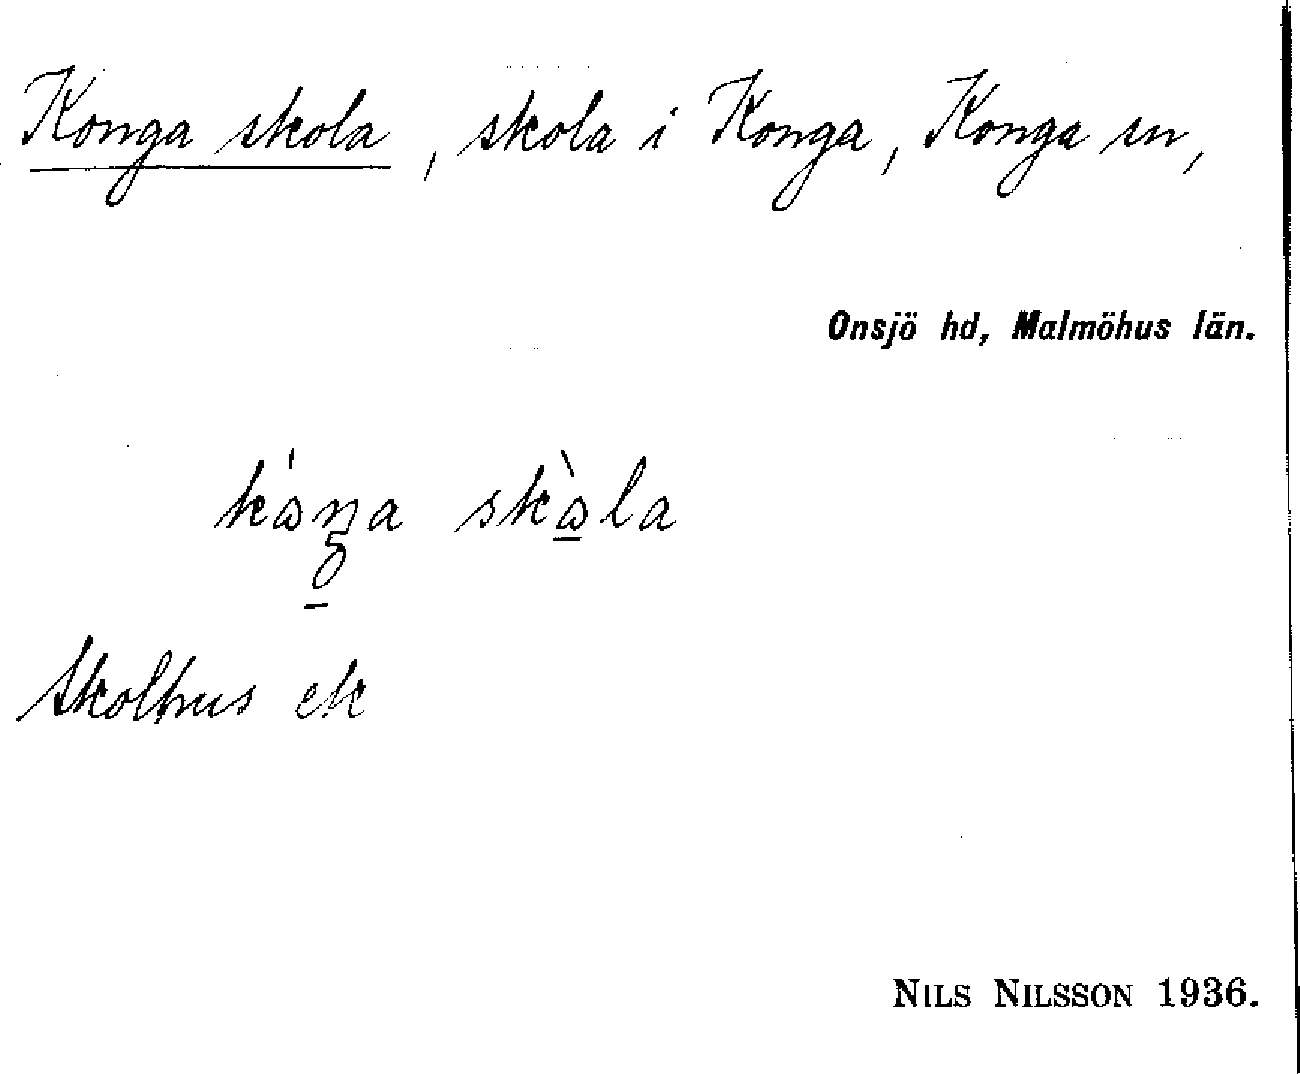 Konga skola, skola i Konga, Konga sn,
Onsjö hd, Malmöhus län.
Skolhus ek
NILS NILSSON 1936.